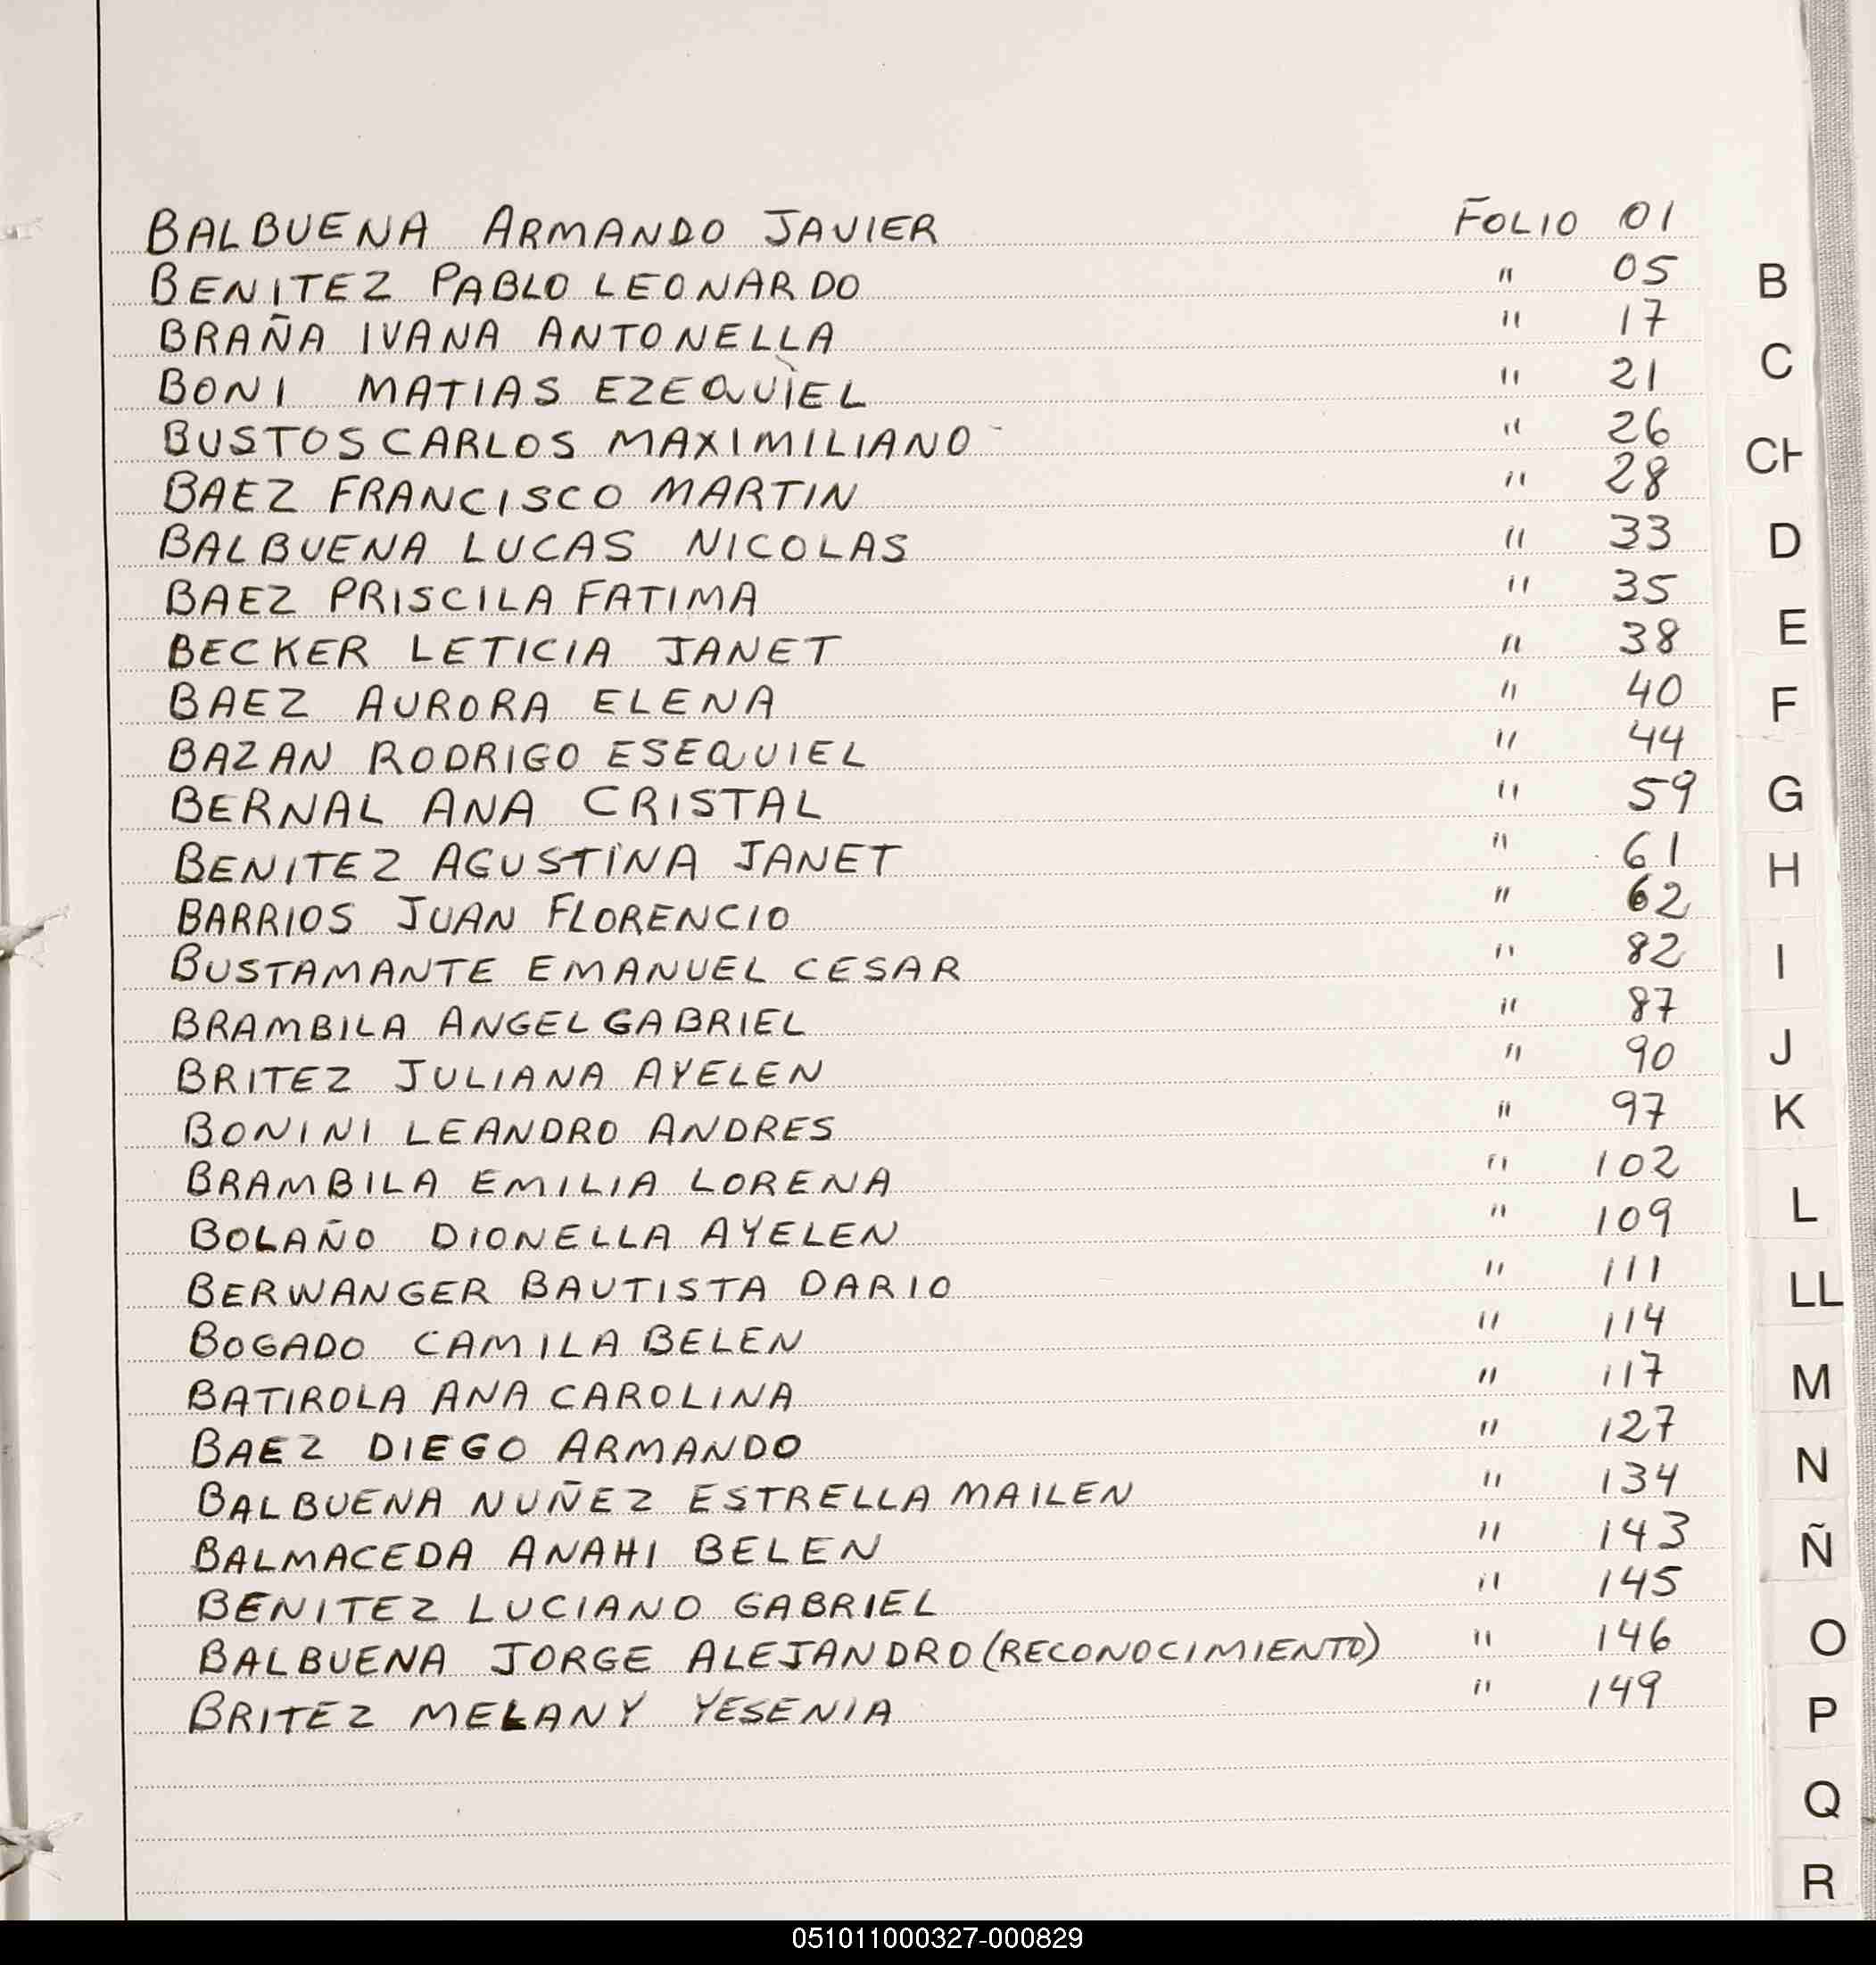 BALBUENA ARMANDO JAVIER FOLIO 01
BENITEZ PABLO LEONARDO " 05
BRAÑA IVANA ANTONELLA " 17
BONI MATIAS EZEQUIEL " 21
BUSTOS CARLOS MAXIMILIANO " 26
BAEZ FRANCISCO MARTIN " 28
BALBUENA LUCAS NICOLAS " 33
BAEZ PRISCILA FATIMA " 35
BECKER LETICIA JANET " 38
BAEZ AURORA ELENA " 40
BAZAN RODRIGO ESEQUIEL " 44
BERNAL ANA CRISTAL " 59
BENITEZ AGUSTINA JANET " 61
BARRIOS JUAN FLORENCIO " 62
BUSTAMANTE EMANUEL CESAR " 82
BRAMBILA ANGEL GABRIEL " 87
BRITEZ JULIANA AYELEN " 90
BONINI LEANDRO ANDRES " 97
BRAMBILA EMILIA LORENA " 102
BOLAÑO DIONELLA AYELEN " 109
BERWANGER BAUTISTA DARIO " 111
BOGADO CAMILA BELEN " 114
BATIROLA ANA CAROLINA " 117
BAEZ DIEGO ARMANDO " 127
BALBUENA NUÑEZ ESTRELLA MAILEN " 134
BALMACEDA ANAHI BELEN " 143
BENITEZ LUCIANO GABRIEL " 145
BALBUENA JORGE ALEJANDRO (RECONOCIMIENTO) " 146
BRITEZ MELANY YESENIA " 149
B
C
CH
D
E
F
G
H
I
J
K
L
LL
M
N
Ñ
O
P
Q
R
051011000327-000829